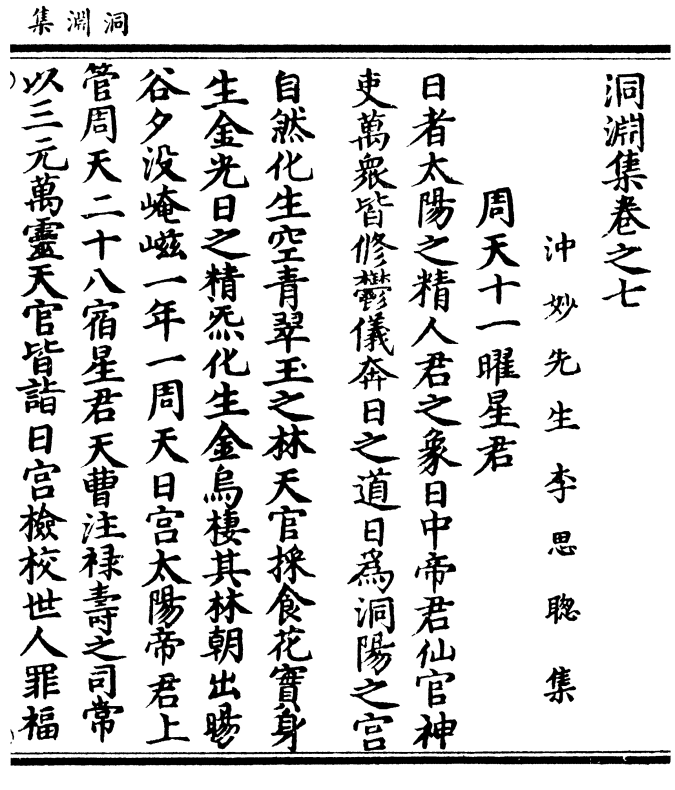 洞淵集
洞淵集卷之七
沖妙先生李思聰集
周天十一曜星君
日者太陽之精人君之象日中帝君仙官神
吏萬衆皆修鬱儀奔日之道日爲洞陽之宮
自然化生空青翠玉之林天官採食花實身
生金光日之精炁化生金烏棲其林朝出暘
谷夕没崦嵫一年一周天日宮太陽帝君上
管周天二十八宿星君天曹注禄壽之司常
以三元萬靈天官皆詣日宮檢校世人罪福